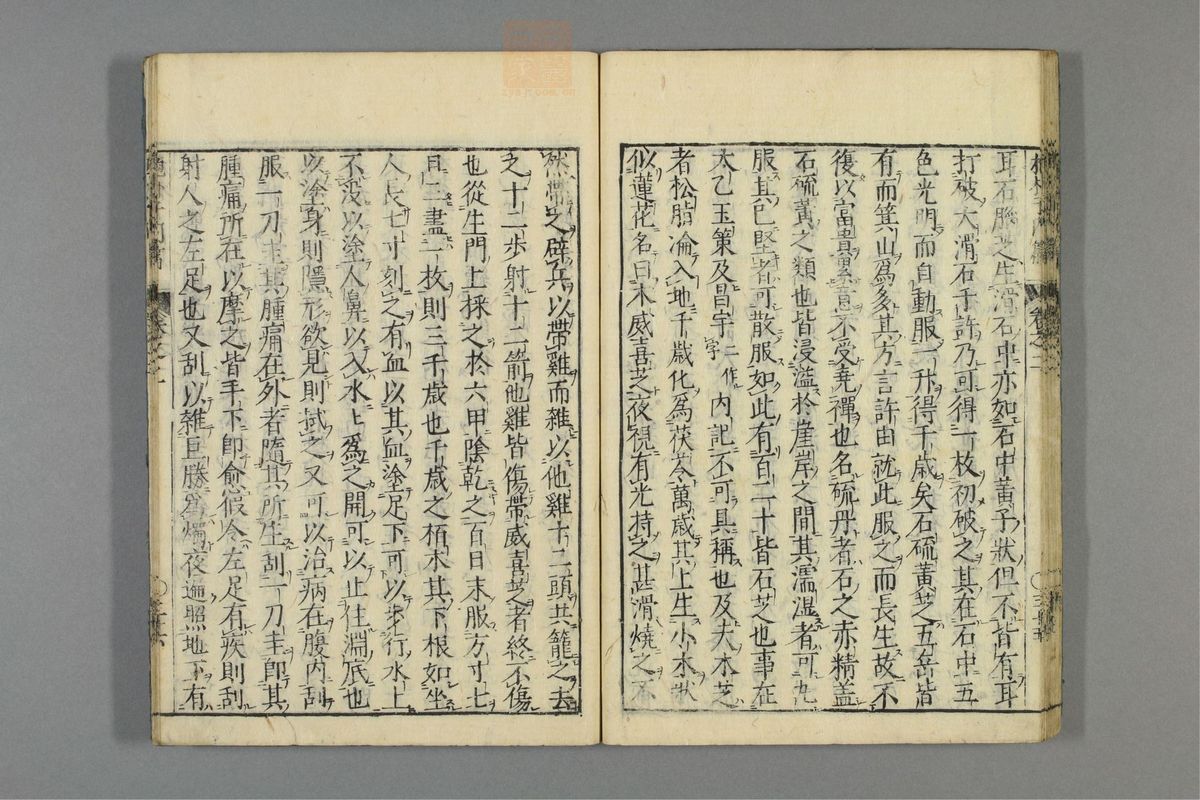 耳石腦芝生滑石中亦如石中黃子狀但不皆有耳
打破大滑石千許乃可得一枚初破之其在石中五
色光明而自動服一升得千歲矣石硫黃芝五岳皆
有而箕山爲多其方言許由就此服之而長生故不
復以富貴累意不受堯禪也名硫丹者石之赤精蓋
石硫黃之類也皆浸溢於崖岸之間其濡湿者可丸
服其已堅者可散服如此有百二十皆石芝也事在
太乙玉策及昌宇一作字內記不可具稱也及夫木芝
者松脂淪入地千歲化爲茯苓萬歲其上生小木狀
似蓮花名曰木威喜芝夜視有光持之甚滑燒之不
然帶之辟兵以帶雞而雜以他雞十二頭共籠之去
之十二步射十二箭他雞皆傷帶威喜芝者終不傷
也從生門上採之於六甲陰乾之百日末服方寸匕
日三盡一枚則三千歲也千歲之栢木其下根如坐
人長七寸刻之有血以其血塗足下可以步行水上
不沒以塗人鼻以入水上爲之開可以止住淵底也
以塗身則隱形欲見則拭之又可以治病在腹內刮
服一刀圭其腫痛在外者隨其所生刮一刀圭卽其
腫痛所在以摩之皆手下卽愈假令左足有疾則刮
射人之左足也又刮以雜巨勝爲燭夜遍照地下有